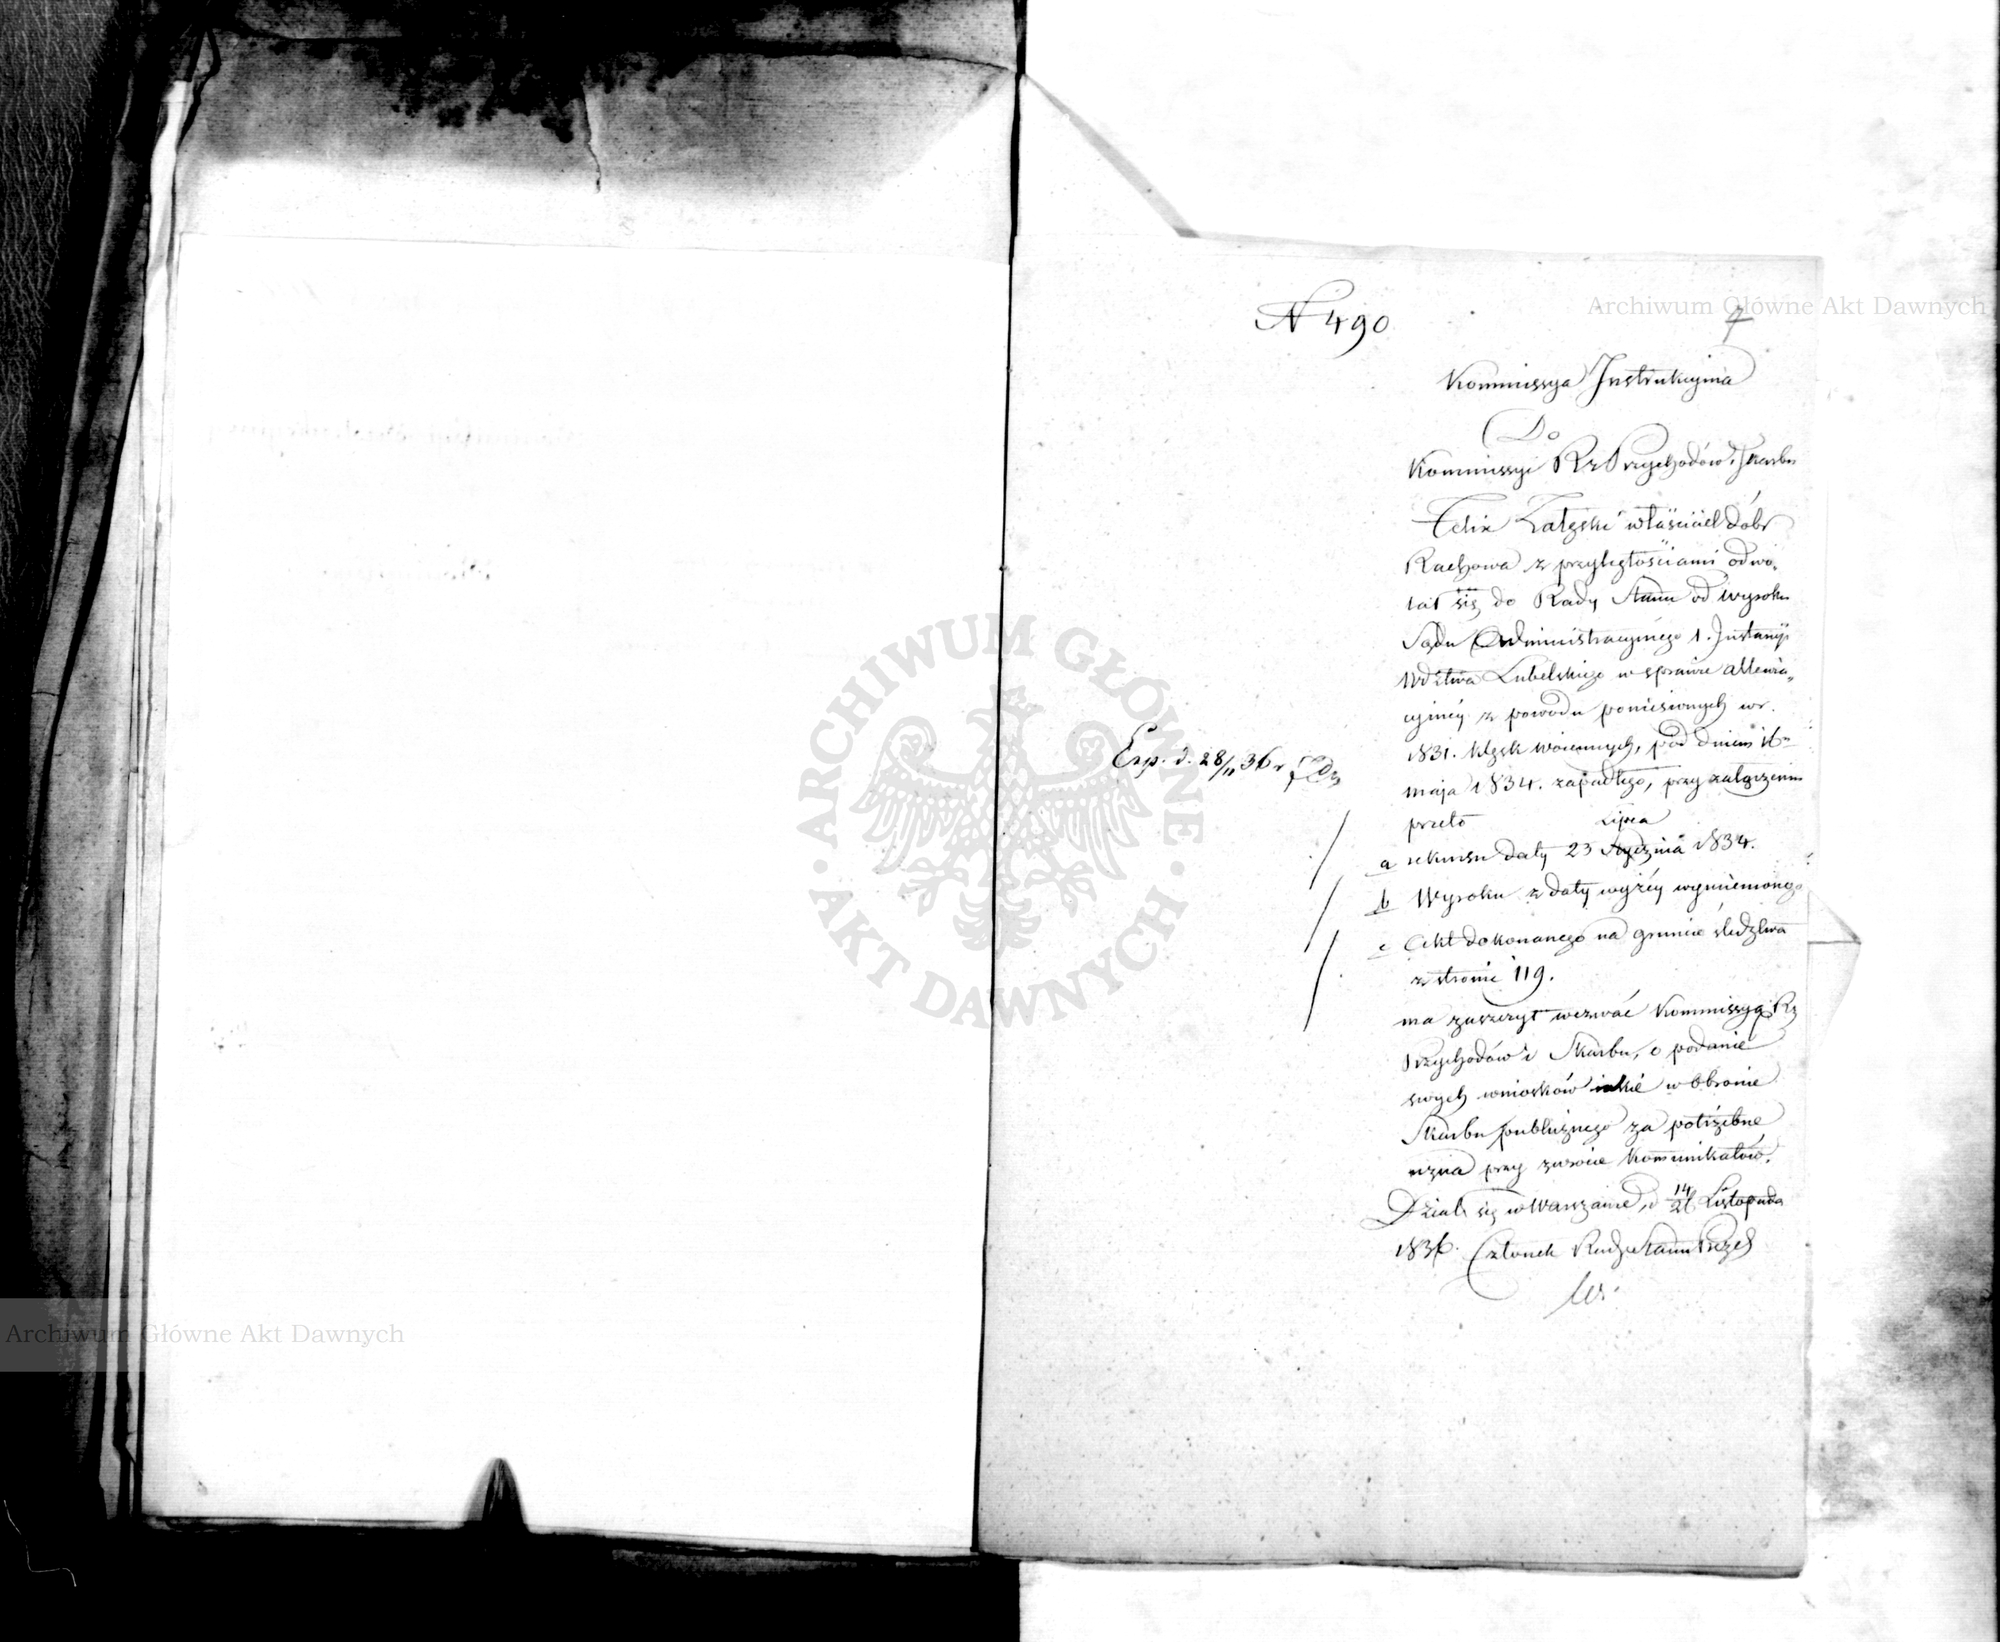 N 490
7
Kommissya Instrukcyina
Do
Kommissyi Rz Przychodów i Skarbu
Felix Załęski właściciel dóbr
Rachowa z przyległościami odwo-
łał się do Rady Stanu od wyroku
Sądu Administracyinego 1. Instancyi
Wdztwa Lubelskiego w sprawie allewia-
cyiney z powodu poniesionych w r.
1831. klęsk woiennych, pod dniem 16
maja 1834. zapadłego, przy załączeniu
przeto
Lipca
a rekursu daty 23 Stycznia 1834.
b Wyroku z daty wyżéy wymienionego
c Akt dokonanego na gruncie śledztwa
z stronic 119.
ma zaszczyt wezwać Kommissyą Rz
Przychodów i Skarbu, o podanie
swych wniosków iakie w obronie
Skarbu publicznego za potrzebne
uzna przy zwrocie kommunikatów.
Działo się w Warszawie, d 14/26 Listopada
1836. Członek Rady Stanu Prezes
Exp. d. 28/11 36 r
ARCHIWUM GŁÓWNE
AKT DAWNYCH
Archiwum Główne Akt Dawnych
Archiwum Główne Akt Dawnych